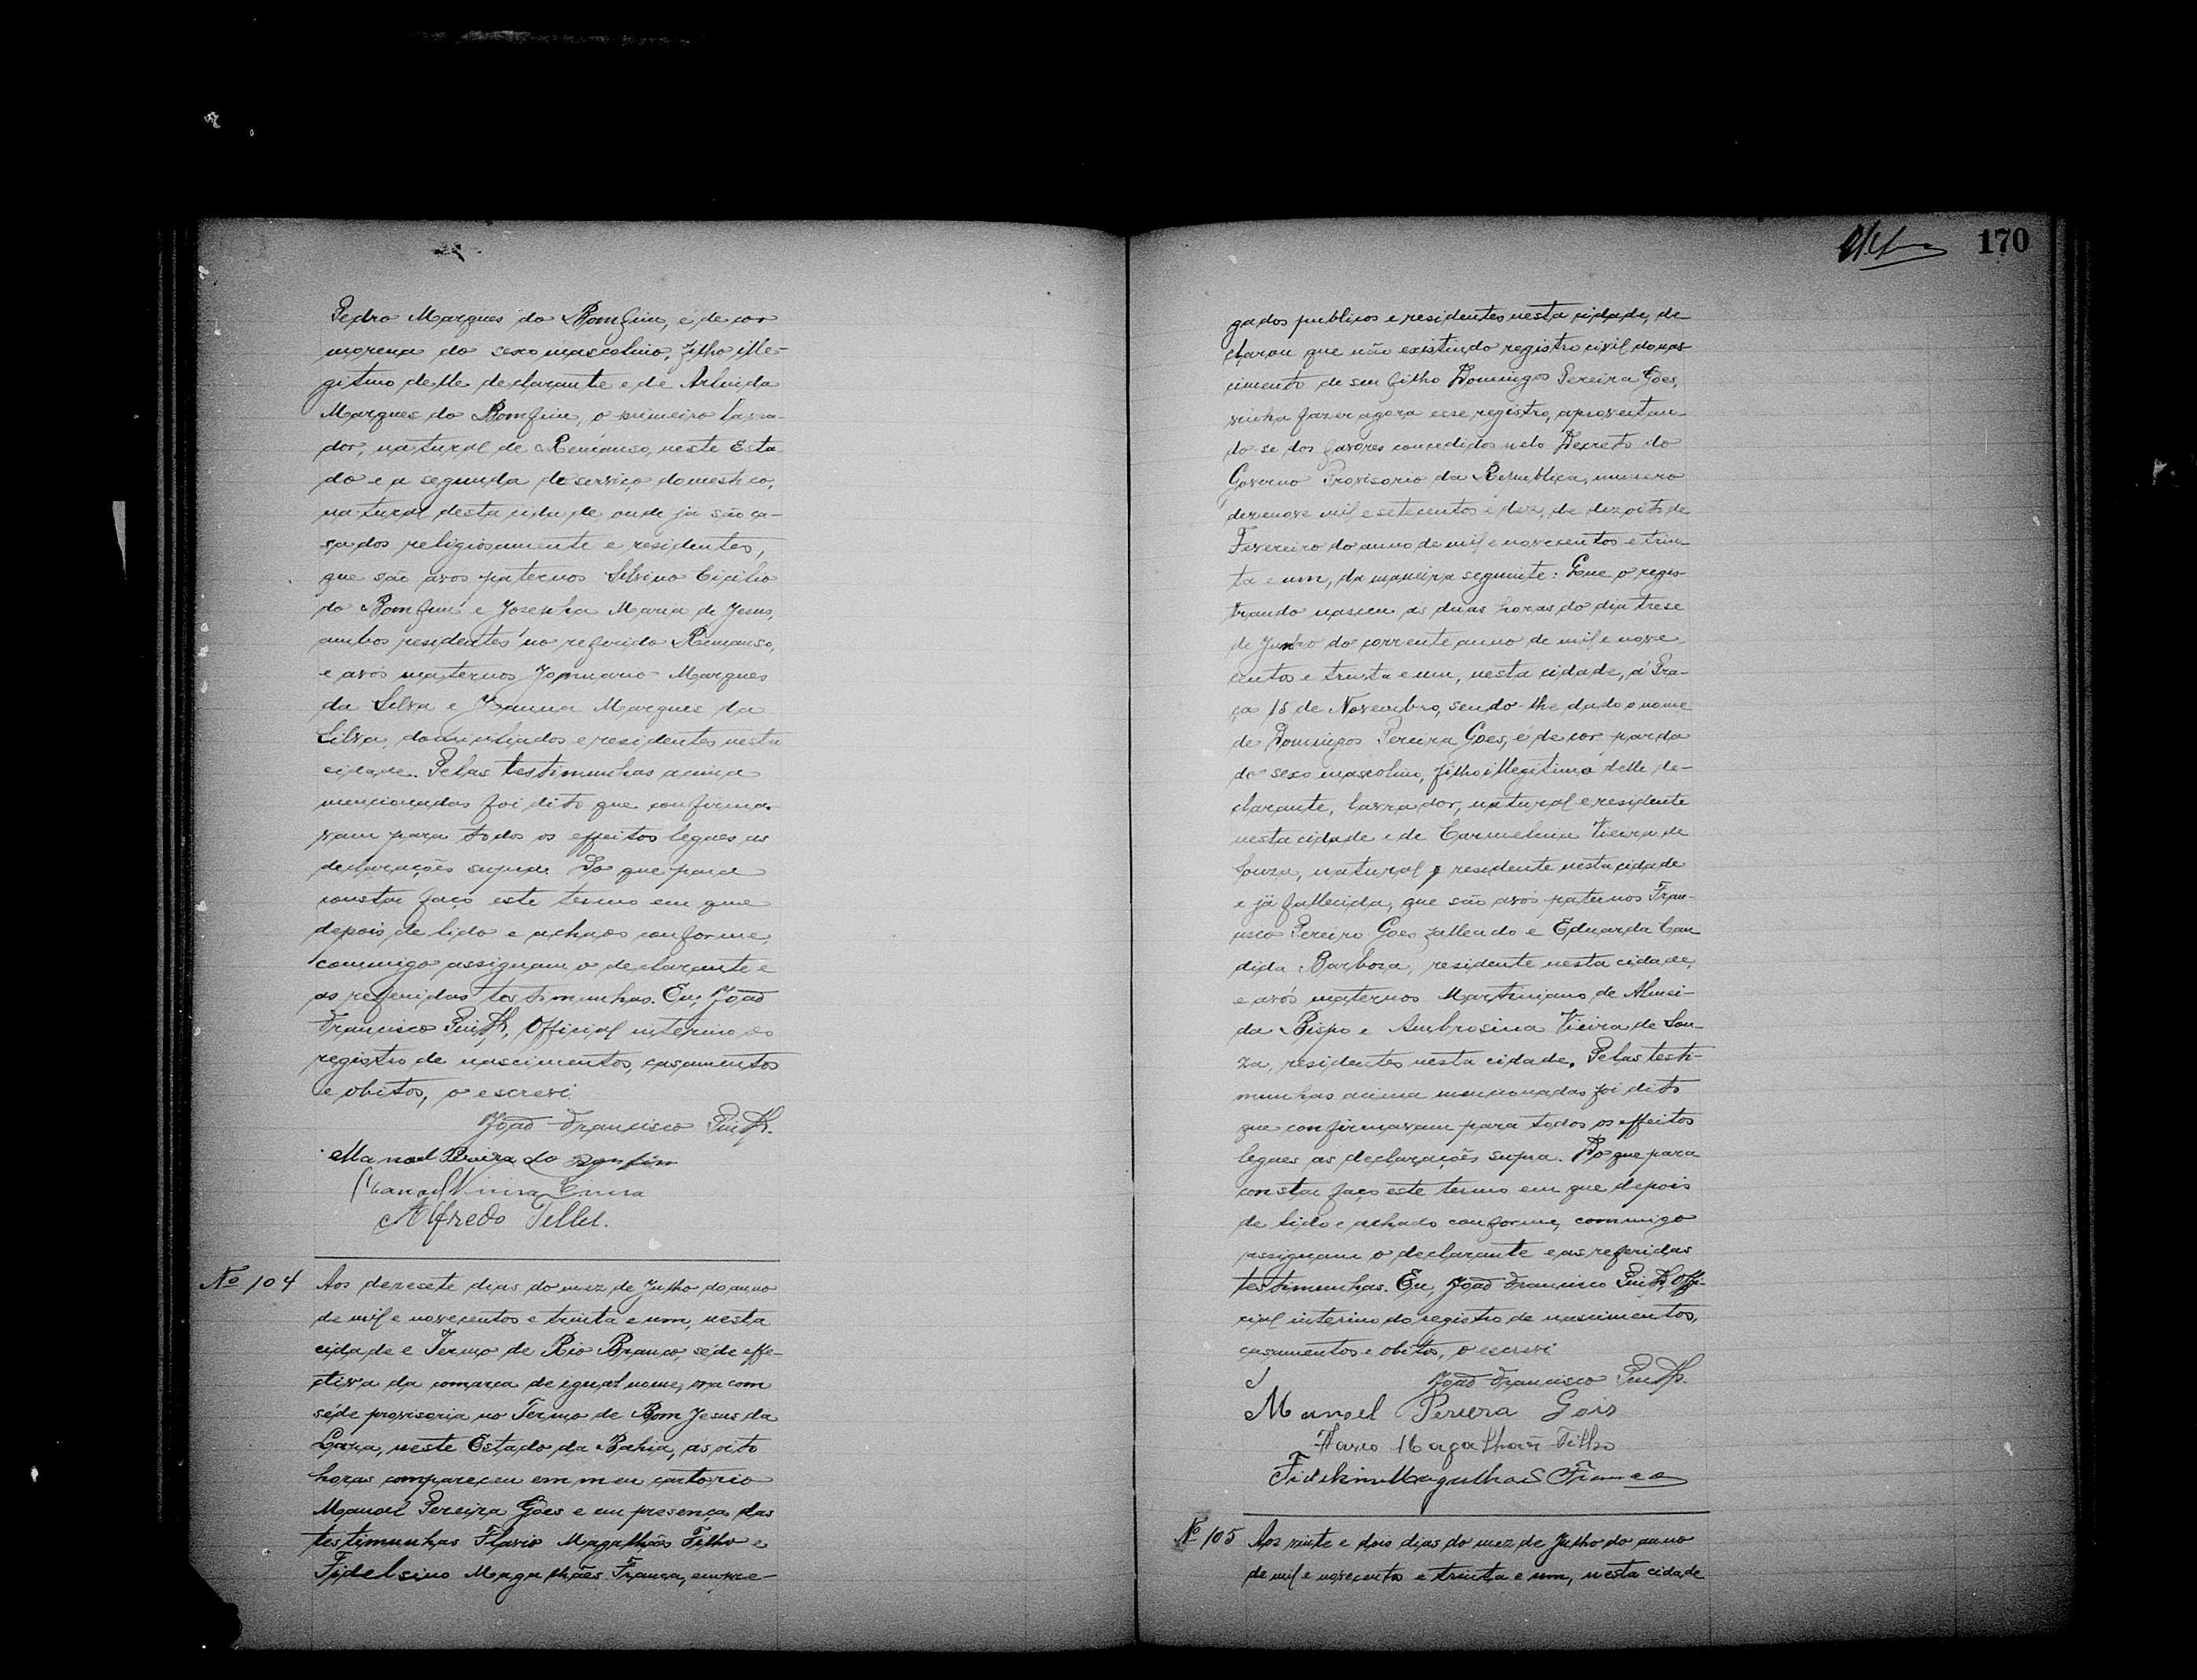 Pedro Marques do Bomfim, é de cor
morena do sexo mascolino, filho ille-
gitimo delle declarante e de Arlinda
Marques do Bomfim, o primeiro lavra-
dor, natural de Remanso, neste Esta
do e a segunda do serviço domestico,
natural desta cidade, onde já são ca-
sados religiosamente e residentes,
que são avos paternos Silvino Cicilio
do Bomfim e Josepha Maria de Jesus,
ambos residentes no referido Remanso,
e avós maternos Januario Marques
da Silva e Joanna Marques da
Silva, domiciliados e residentes nesta
cidade. Pelas testimunhas acima
mencionadas foi dito que confirma-
vam para todos os effeitos legaes as
declarações supra. Do que para
constar faço este termo em que
depois de lido e achado conforme,
commigo assignam o declarante e
as referidas testimunhas. Eu, João
Francisco, Official interino do
registro de nascimentos, casamentos
e obitos, o escrevi.
João Francisco
Manoel Pereira do Bomfim
Manoel
Alfredo Telles.
Nº 104 Aos dezesete dias do mez de Julho do anno
de mil e novecentos e trinta e um, nesta
cidade e Termo de Rio Branco, séde effe-
ctiva da comarca de igual nome, ora com
séde provisoria no Termo de Bom Jesus da
Lapa, neste Estado da Bahia, ás oito
horas compareceu em meu cartorio
Manoel Pereira Goes e em presença das
testimunhas Flavio Magalhães Filho e
Fidelsino Magalhães França, empre-
170
gados publicos e residentes nesta cidade, de
clarou que não existindo registro civil do nas-
cimento de seu filho Domingos Pereira Goes,
vinha fazer agora esse registro, aproveitan-
do-se dos favores concedidos pelo Decreto do
Governo Provisorio da Republica, numero
dezenove mil e setecentos e dez, de dezoito de
Fevereiro do anno de mil e novecentos e trin-
ta e um, da maneira seguinte: Que o regis-
trando nasceu as duas horas do dia trese
de Junho do corrente anno de mil e nove
centos e trinta e um, nesta cidade, á Pra-
ça 15 de Novembro, sendo-lhe dado o nome
de Domingos Pereira Goes, é de cor parda
do sexo mascolino, filho illegitimo delle de-
clarante, lavrador, natural e residente
nesta cidade e de Carmelina Vieira de
Souza, natural e residente nesta cidade
e já fallecida, que são avós paternos Fran-
cisco Pereira Goes fallecido e Eduarda Can
dida Barbosa, residente nesta cidade,
e avós maternos Martiniano de Almei-
da Bispo e Ambrosina Vieira de Sou-
za, residentes nesta cidade. Pelas testi-
munhas acima mencionadas foi dito
que confirmavam para todos os effeitos
legaes as declarações supra. Do que para
constar faço este termo em que depois
de lido e achado conforme, commigo
assignam o declarante e as referidas
testimunhas. Eu, João Francisco Offi-
cial interino do registro de nascimentos,
casamentos e obitos, o escrevi
João Francisco
Manoel Pereira Gois
Flavio Magalhães Filho
Fidelsino Magalhães França
Nº 105 Aos vinte e dois dias do mez de Julho do anno
de mil e novecentos e trinta e um, nesta cidade